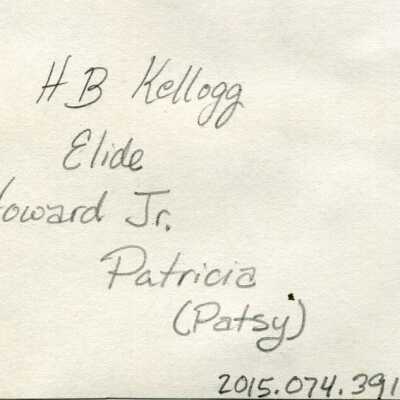 H B Kellogg
Elide
Howard Jr.
Patricia
(Patsy)
2015.074.391